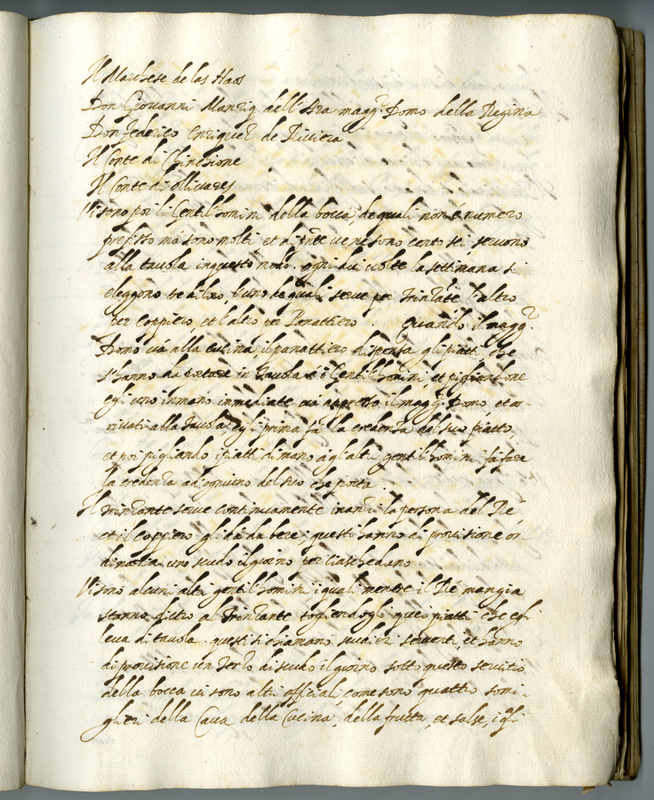 Il Marchese de las Haos
Don Giovanni Manriq dell'Ara magg.r Domo della Regina
Don federico Enriquez de Riviera
Il Conte di Chinchione
Il Conte di ollivares
Vi sono poi li Gentil'homini della bocca, de quali non é numero
prefisso mà sono molti et di pñte ve ne sono cento sei, servono
alla tavola in questo modo. ogni dui volte la settimana si
eleggono tre di loro, l'uno de quali serve per Trinzate l'altro
per coppiero, et l'altro per Panattiero. Quando il magg.r
Domo và alla cucina il panattiero dispensa gli piatti che
s'hanno da portare in tavola à i Gentil'homini, et pigliandone
egli uno in mano immediate và appresso il magg.r Domo, et ar-
rivati alla tavola egli prima fà la credenza del suo piatto,
et poi pigliando i piatti di mano à gl'altri gentil'homini fà fare
la credenza ad ogniuno del suo che porta.
Il trinzante serve continuamente inanzi la persona del Rè
et il coppiero gli dà da bere: questi hanno di provisione or-
dinaria uno scudo il giorno per ciascheduno
Vi sono alcuni altri gentil'homini i quali mentre il Rè mangia
stanno dietro al Trinzante togliendogli quei piatti che egli
leva di tavola. questi si chiamano scudieri serventi, et hanno
di provisione un terzo di scudo il giorno sotto questo servitio
della bocca vi sono altri officiali, come sono quattro somi-
glieri della Cava della Cucina, della frutta, et salse, i qli